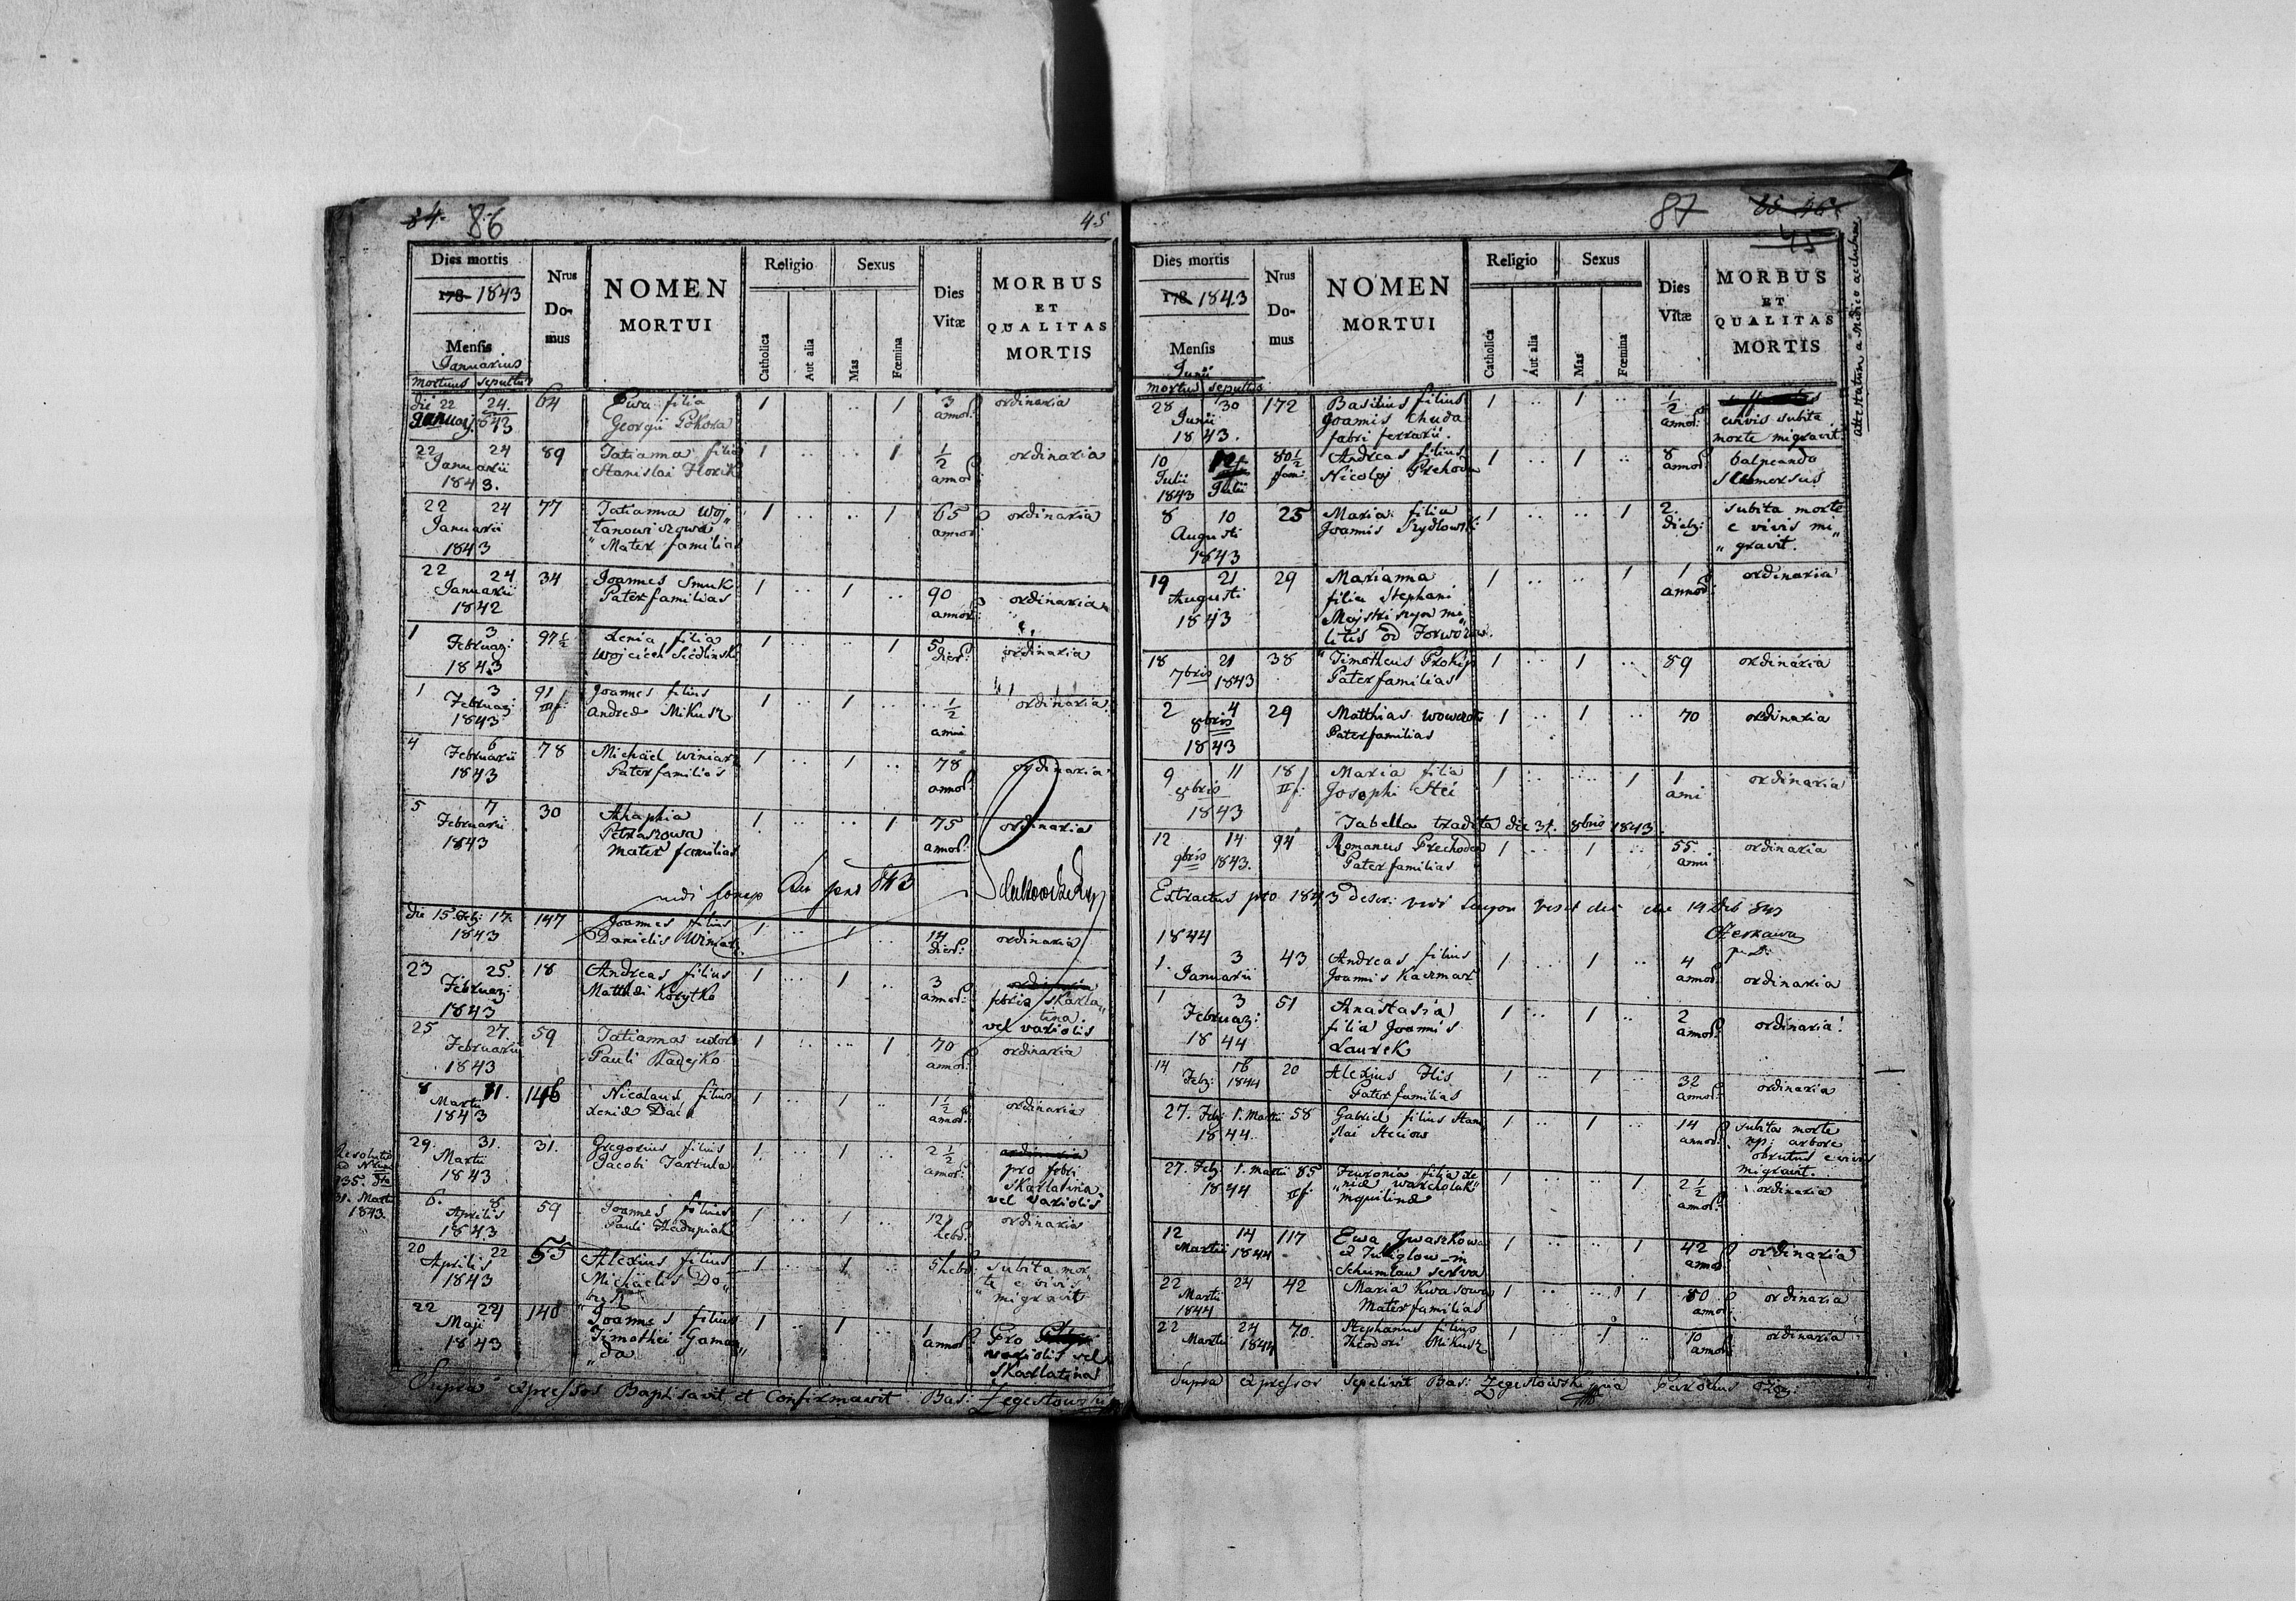 84. 86
45
Dies mortis
178- 1843
Mensis
Januarius
mortuus sepultus
Nrus
Do-
mus
NOMEN
MORTUI
Religio
Catholica
Aut alia
Sexus
Mas
Fœmina
Dies
Vitæ
MORBUS
ET
QUALITAS
MORTIS
die 22 24. 64 Ewa filia 1 .. 1 3 ordinaria
Januarj. 1843 Georgii Pokora annor:
22 24 89 Tatianna filia 1 .. .. 1 1/2 ordinaria
Januarii Stanislai Florik annor:
1843.
22 24 77 Tatianna Woj„ 1 .. .. 1 65 ordinaria
Januarii tanowiczowa annor:
1843 „Mater familias
22 24 34 Joannes Smuk 1 .. 1 .. 90 ordinaria
Januarii Pater familias annor:
1842
1 3 97 1/2 Xenia filia 1 .. .. 1 5 ordinaria
Februarj: Wojciech Siedlinski dier:
1843
1 3 91 Joannes filius 1 .. 1 .. 1/2 ordinaria
Februarj: IIf: Andreæ Mikusz anni
1843
4 6 78 Michäel Winiarz 1 .. 1 .. 78 ordinaria
Februarii Pater familias annor:
1843
5 7 30 Ahaphia 1 .. .. 1 75 ordinaria
Februarii Petraszowa annor:
1843 mater familias
die 15. Febr: 17. 147 Joannes filius 1 .. 1 .. 14 ordinaria
1843 Danielis Winiarz dier:
23 25. 18 Andreas filius 1 .. 1 .. 3 ordinaria
Februarj Matthæi Korytko annor: febris skarla„
1843 tina
vel variolis
25 27. 59 Tatiannas uxor 1 .. .. 1 70 ordinaria
Februarii Pauli Radejko annor:
1843
8 11. 146 Nicolaus filius 1 .. 1 .. 1 1/2 ordinaria
Martii Xeniæ annor:
1843
Resolutio
ad Nrum
935. dto
31. Martii
1843.
29. 31. 31. Gregorius filius 1 .. 1 .. 2 1/2 ordinaria
Martii Jacobi Tartula annor: pro febri
1843 skarlatina
vel variolis
6. 8 59 Joannes filius 1 .. 1 .. 12 ordinaria
Aprilis Pauli hebd:
1843
20 22 55 Alexius filius 1 .. 1 .. 5 hebd: subita mor„
Aprilis Michaelis Do„ te e vivis
1843 „migravit
22 24 148 Joannes filius 1 .. 1 .. 1 Pro
Maji Timothei Gaman„ annor: variolis vel
1843 „da skarlatina
Supra expressos Baptisavit et Confirmavit Bas: Zegestowski
87 85 46
45
attestatum a Medico
Dies mortis
178 1843
Mensis
Junii
mortuus sepultus
Nrus
Do-
mus
NOMEN
MORTUI
Religio
Catholica
Aut alia
Sexus
Mas
Fœmina
Dies
Vitæ
MORBUS
ET
QUALITAS
MORTIS
28 30 172 Basilius filius 1 .. 1 .. 1/2
Junii Joannis Chuda annor: e vivis subita
1843. fabri ferrarii. morte migravit
10 12 80 1/2 Andreas filius 1 .. 1 .. 8 balneando
Julii Julii fam: Nicolaj Prehoda annor: submersus
1843
8 10 25 Maria filia 1 .. .. 1 2. subita morte
Augusti Joannis Szydlowski dieb: e vivis mi„
1843 „gravit.
19 21 29 Marianna 1 .. .. 1 1 ordinaria
Augusti filia Stephani annor:
1843 mi„
litis
18 21 38 Timotheus Prokip 1 .. 1 .. 89 ordinaria
7bris 1843 Pater familias
2 4 29 Matthias 1 .. 1 .. 70 ordinaria
8bris Paterfamilias
1843
9 11 18 Maria filia 1 .. .. 1 1 ordinaria
8bris IIf: Josephi Stei ani
1843
Tabella tradita die 31. 8bris 1843.
12 14 94 Romanus Prechoda 1 .. 1 .. 55. ordinaria
9bris 1843. Pater familias anni
Extractus pro 1843
1844
1. 3 43 Andreas filius 1 .. 1 .. 4 ordinaria
Januarii Joannis Kaczmar annor:
1 3 51 Anastasia 1 .. 1 .. 2 ordinaria
Februarj: filia Joannis annor:
1844 Laurek
14 16 20 Alexius His 1 .. 1 .. 32 ordinaria
Febr: 1844 Pater familias annor:
27. Febr: 1. Martii 58 Gabriel filius Stani 1 .. 1 .. 14 subita morte
1844. „slai Steciow annor: np: arbore
obrutus e vivis
migravit.
27. Febr: 1. Martii 85 filia Xe 1 .. .. 1 2 1/2 ordinaria
1844 IIf: „niæ Warcholak annor:
inquilinæ
12 14 117 Ewa Jwaszkowa 1 .. .. 1 42 ordinaria
Martii 1844 ex Tuliglow in annor:
Schumlau serva
22 24 42 Maria Kwasowa 1 .. .. 1 80 ordinaria
Martii Mater familias annor:
1844
22 24 70. Stephanus filius 1 .. 1 .. 10 ordinaria
Martii 1844 Theodori Mikusz annor:
Supra expressos sepelivit Bas: Zegestowski